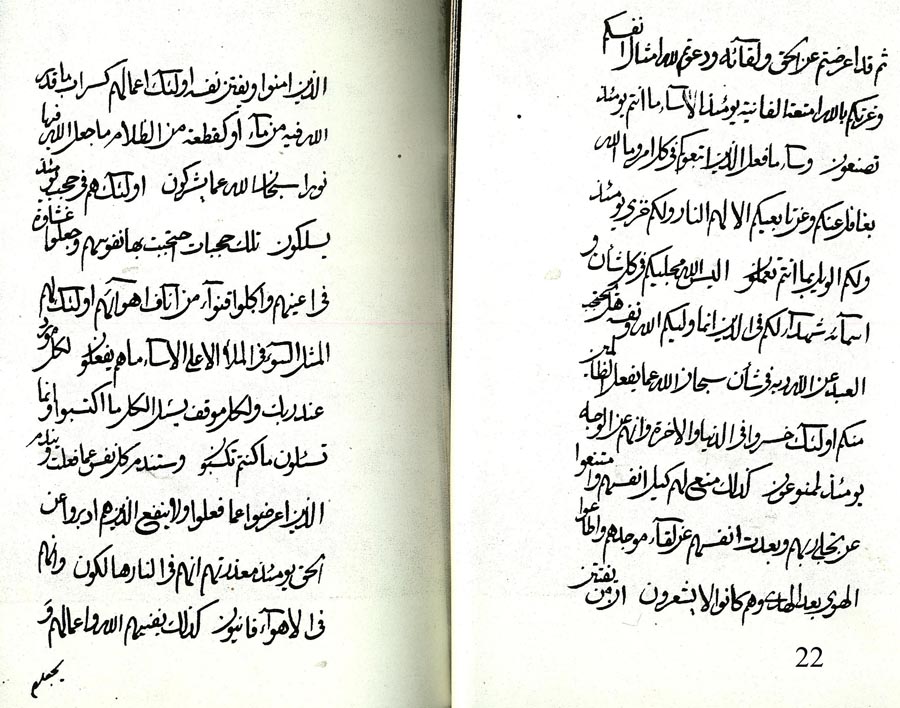 ثم قد اعرضتم عن الحق ولقآئه ودعوتم لله امثال انفسكم
وغرتكم بالله امتعة الفانية يومئذ الا سآء ما انتم يومئذ
تصنعون وسآء ما فعل الذين اتبعوكم في كل امر وما الله
بغافل عنكم وعن تابعيكم الا لهم النار ولكم خزي يومئذ
ولكم الويل بما انتم تعملون اليس الله مجليكم في كل شأن و
اسمآئه شهدآء لكم في الذين انما وليكم الله ونفسه هل يحتجب
العبد عن الله ربه في شأن سبحان الله عما يفعل الظالمين
منكم اولئك خسروا في الدنيا والاخرة وانهم عن الوجه
يومئذ لممنوعون كذلك منع لهم كيل انفسهم وامتنعوا
عن تجلي ربهم وبعدت انفسهم عن لقآء موجدهم واطاعوا
الهوى بعد الهدى وهم كانوا لا يشعرون ان من يفتتن
22
الذين امنوا ويفتن نفسه اولئك اعمالهم كسراب ما قدر
الله فيه من مآء او كقطعة من الظلام ما جعل الله فيها
نورا سبحان الله عما يشركون اولئك هم في حجب يومئذ
يسلكون تلك حجبات احتجبت بها نفوسهم وجعلوا غشاوة
في اعينهم واكلوا قنوآء من اتاف اهوآئهم اولئك لهم
المثل السوء في الملأ الاعلى الا سآء ما هم يفعلون لكل مورد
عند ربك ولكل موقف يسئل الكل ما اكتسبوا وانما
تسئلون ما كنتم تكسبون وستندم كل نفس عما فعلت ويندم
الذين اعرضوا عما فعلوا ولا ينفع الذين هم ادبروا عن
الحق يومئذ معذرتهم انهم في النار هالكون وانهم
في الاهوآء فانيون كذلك يفنيهم الله واعمالهم و
يجعلهم